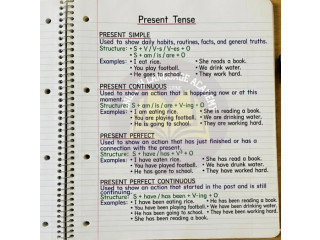 Present Tense
PRESENT SIMPLE
Used to show daily habits, routines, facts, and general truths.
Structure: • S + V / V-s / V-es + O
• S + am / is / are + O
Examples: • I eat rice. • She reads a book.
• You play football. • We drink water.
• He goes to school. • They work hard.
PRESENT CONTINUOUS
Used to show an action that is happening now or at this
moment.
Structure: S + am / is / are + V-ing + O
Examples: • I am eating rice. • She is reading a book.
• You are playing football. • We are drinking water.
• He is going to school. • They are working hard.
PRESENT PERFECT
Used to show an action that has just finished or has a
connection with the present.
Structure: S + have / has + V³ + O
Examples: • I have eaten rice. • She has read a book.
• You have played football. • We have drunk water.
• He has gone to school. • They have worked hard.
PRESENT PERFECT CONTINUOUS
Used to show an action that started in the past and is still
continuing.
Structure: S + have / has been + V-ing + O
Examples: • I have been eating rice. • He has been reading a book.
• You have been playing football. • We have been drinking water.
• She has been going to school. • They have been working hard.